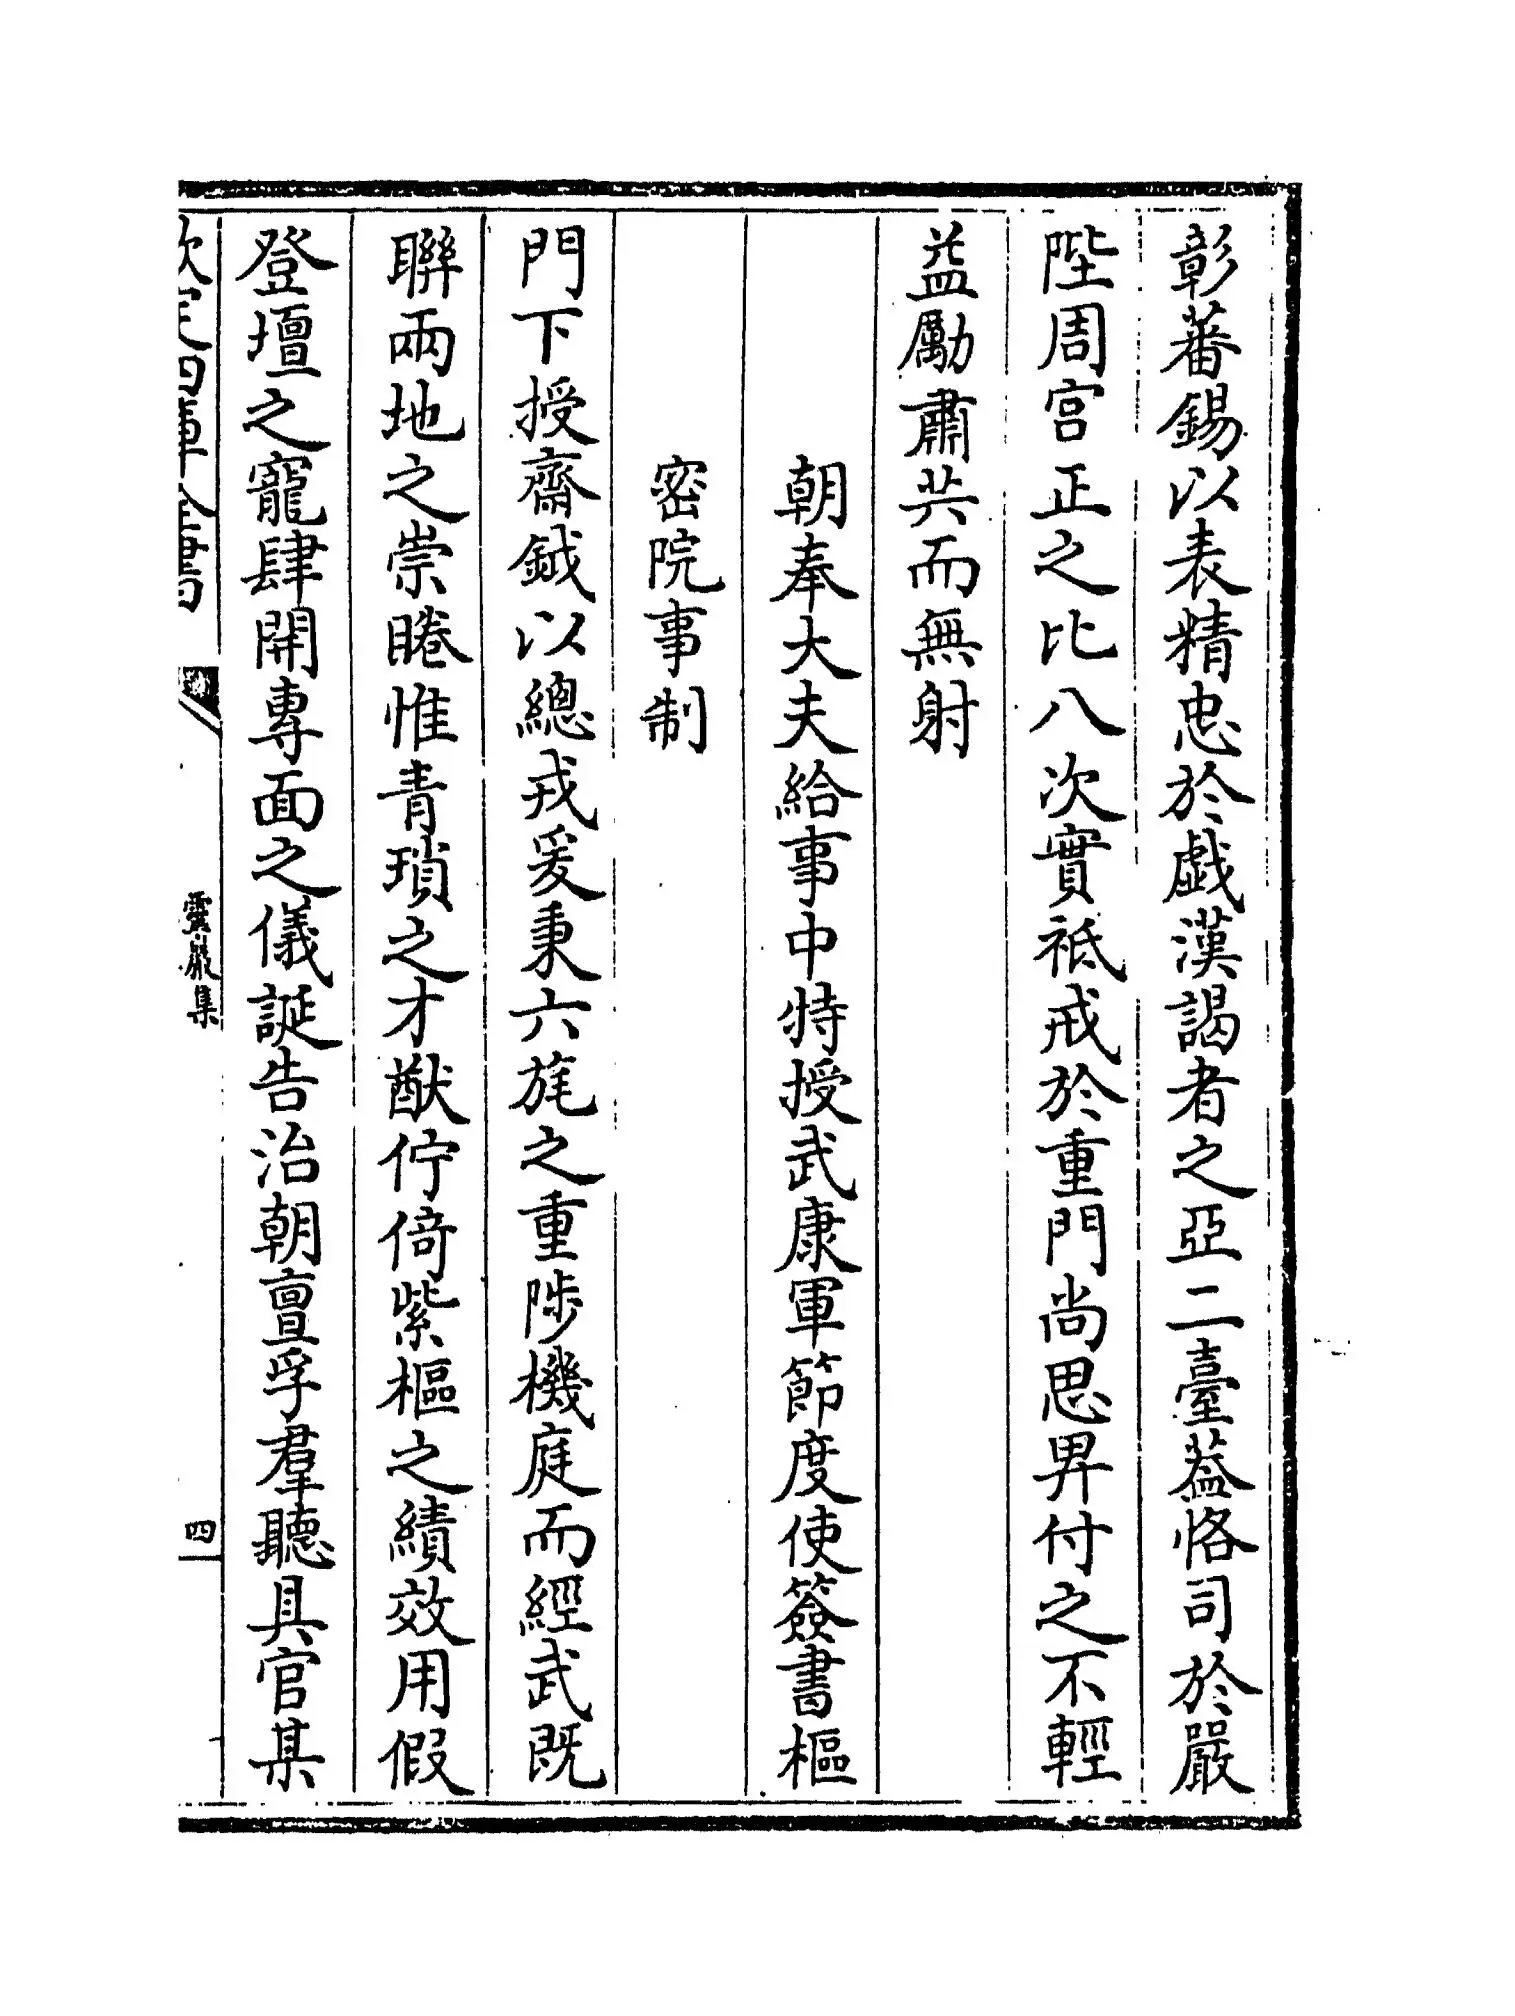 彰蕃錫以表精忠於戯漢謁者之亞二臺葢恪司於嚴
陛周宫正之比八次實祗戒於重門尚思畀付之不輕
益勵肅共而無射
朝奉大夫給事中特授武康軍節度使簽書樞
密院事制
門下授齋鉞以總戎爰秉六旄之重陟機庭而經武既
聯兩地之崇睠惟青瑣之才猷佇倚紫樞之績效用假
登壇之寵肆開專面之儀誕告治朝亶孚羣聽具官某
欽定四庫全書
雲巖集
四